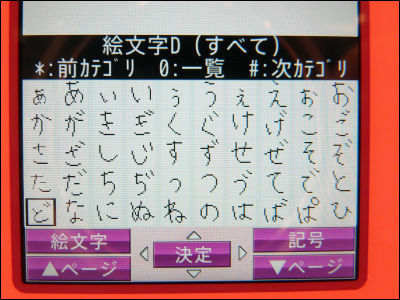 絵文字D(すべて)
*:前ｶﾃｺﾞﾘ 0:一覧 #:次ｶﾃｺﾞﾘ
ぁ あ ぃ い ぅ う ぇ え ぉ お
か が き ぎ く ぐ け げ こ ご
さ ざ し じ す ず せ ぜ そ ぞ
た だ ち ぢ っ つ づ て で と
ど な に ぬ ね の は ば ぱ ひ
絵文字 決定 記号
▲ページ ▼ページ